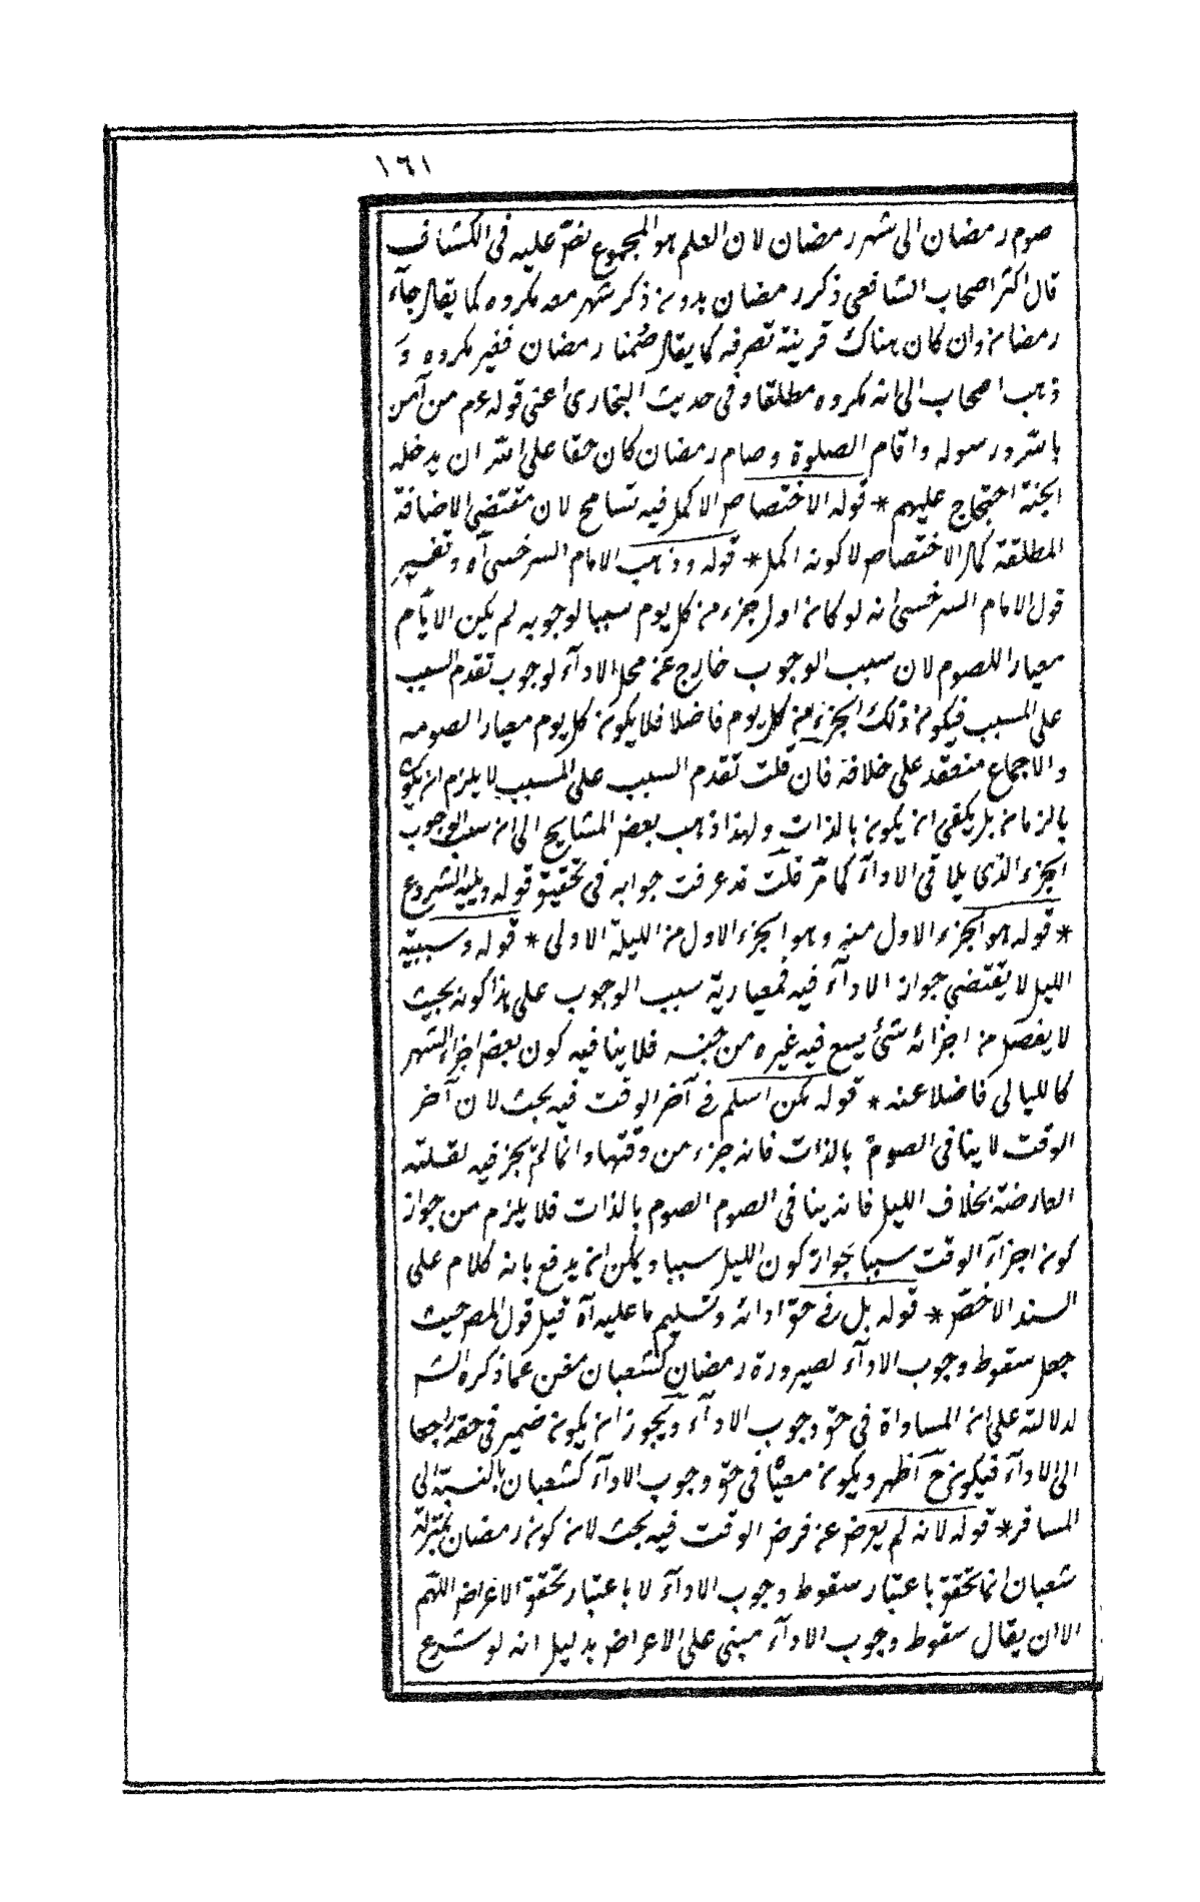 ١٦١
صوم رمضان الى شهر رمضان لان العلم هو المجموع نص عليه فى الكشاف
قال اكثر اصحاب الشافعى ذكر رمضان بدون ذكر شهر معه مكروه كما يقال جآء
رمضان وان كان هناك قرينة تصرفه كما يقال صُمنا رمضان فغير مكروه وَ
ذهب اصحاب الى انه مكروه مطلقا وفى حديث البخارى اعنى قوله عم من آمن
بالله ورسوله واقام الصلوة وصام رمضان كان حقا على الله ان يدخله
الجنة احتجاج عليهم * قوله الاختصاص الاكمل فيه تسامح لان مقتضى الاضافة
المطلقة كمال الاختصاص لا كونه اكمل * قوله وذهب الامام السرخسى آه وتفسير
قول الامام السرخسى انه لو كان اول جزء من كل يوم سببا لوجوبه لم يكن الايّام
معيارا للصوم لان سبب الوجوب خارج عن محل الادآء لوجوب تقدم السبب
على المسبب فيكون ذلك الجزء من كل يوم فاضلا فلا يكون كل يوم معيارا لصومه
والاجماع منعقد على خلافة فان قلت تقدم السبب على المسبب لا يلزم ان يكون
بالزمان بل يكفى ان يكون بالذات ولهذا ذهب بعض المشايخ الى ان سبب الوجوب
الجزء الذى يلاقى الادآء كما مّر قلت قد عرفت جوابه فى تحقيق قوله ويليه الشروع
* قوله هو الجزء الاول منه وهو الجزء الاول من الليلة الاولى * قوله وسببية
الليل لا يقتضى جواز الادآء فيه فمعيارية سبب الوجوب على هذا كونه بحيث
لا يفصل من اجزائه شئ يسع فيه غيره من جنسه فلا ينافيه كون بعض اجزاء الشهر
كالليالى فاضلا عنه * قوله كمن اسلم فى آخر الوقت فيه بحث لان آخر
الوقت لا ينافى الصوم بالذات فانه جزء من وقتها وانما لم يجز فيه لقلته
العارضة بخلاف الليل فانه ينافى الصوم الصوم بالذات فلا يلزم من جواز
كون اجزآء الوقت سببا بجواز كون الليل سببا ويمكن ان يدفع بانه كلام على
السند الاخصّ * قوله بل فى حق ادائه وتسليم ما عليه آه قيل قول المص حيث
جعل سقوط وجوب الادآء لصيرورة رمضان كشعبان مغن عما ذكره الشه
لدلالته على ان المساواة فى حق وجوب الادآء ويجوز ان يكون ضمير فى حقه راجعا
الى الادآء فيكون ح آظهر ويكون فى حق وجوب الادآء كشعبان بالنسبة الى
المسافر * قوله لانه لم يعرض عن فرض الوقت فيه بحث لان كون رمضان بمنزلة
شعبان انما تحقق باعتبار سقوط وجوب الادآء لا باعتبار تحقق الاعراض اللهم
الا ان يقال سقوط وجوب الادآء مبنى على الاعراض بدليل انه لو شرع